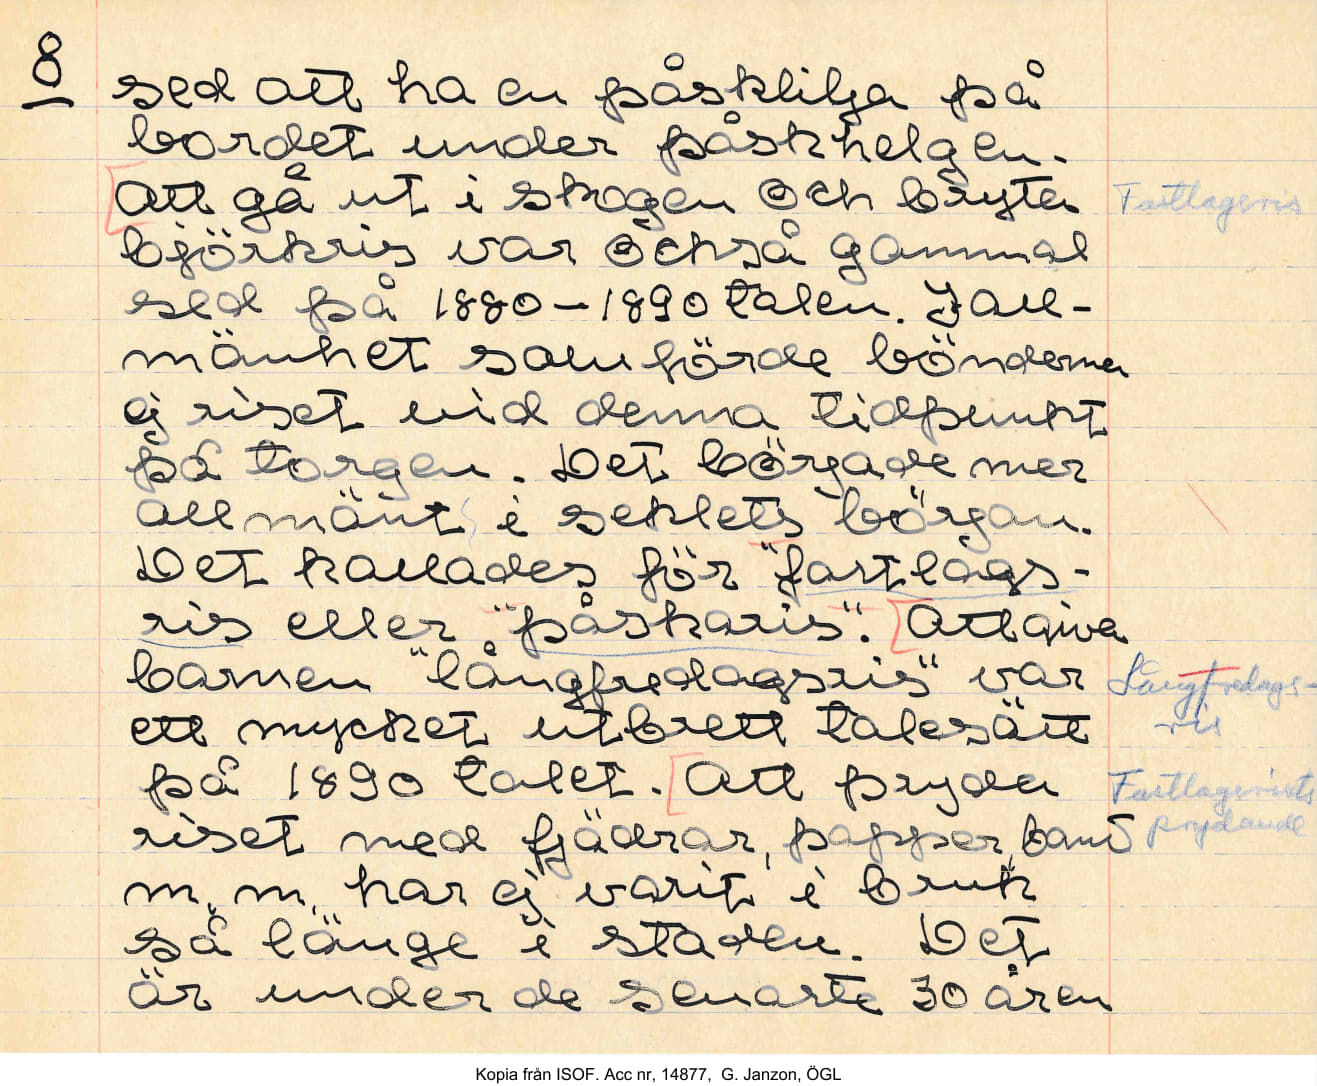 8
sed att ha en påsklilja på
bordet under påskhelgen.
Att gå ut i skogen och bryta
Fastlagsris
björkris var också gammal
sed på 1880-1890 talen. I all-
mänhet saluförde bönderna
ej riset vid denna tidpunkt
på torgen. Det började mer
allmänt i seklets början.
Det kallades för "fastlags-
ris eller "påskaris". Att giva
barnen "långfredagsris" var
Långfredags-
ris
ett mycket utbrett talesätt
på 1890 talet. Att pryda
Fastlagsrisets
prydande
riset med fjädrar, papper, band
m. m. har ej varit i bruk
så länge i staden. Det
är under de senaste 30 åren
Kopia från ISOF. Acc nr, 14877, G. Janzon, ÖGL